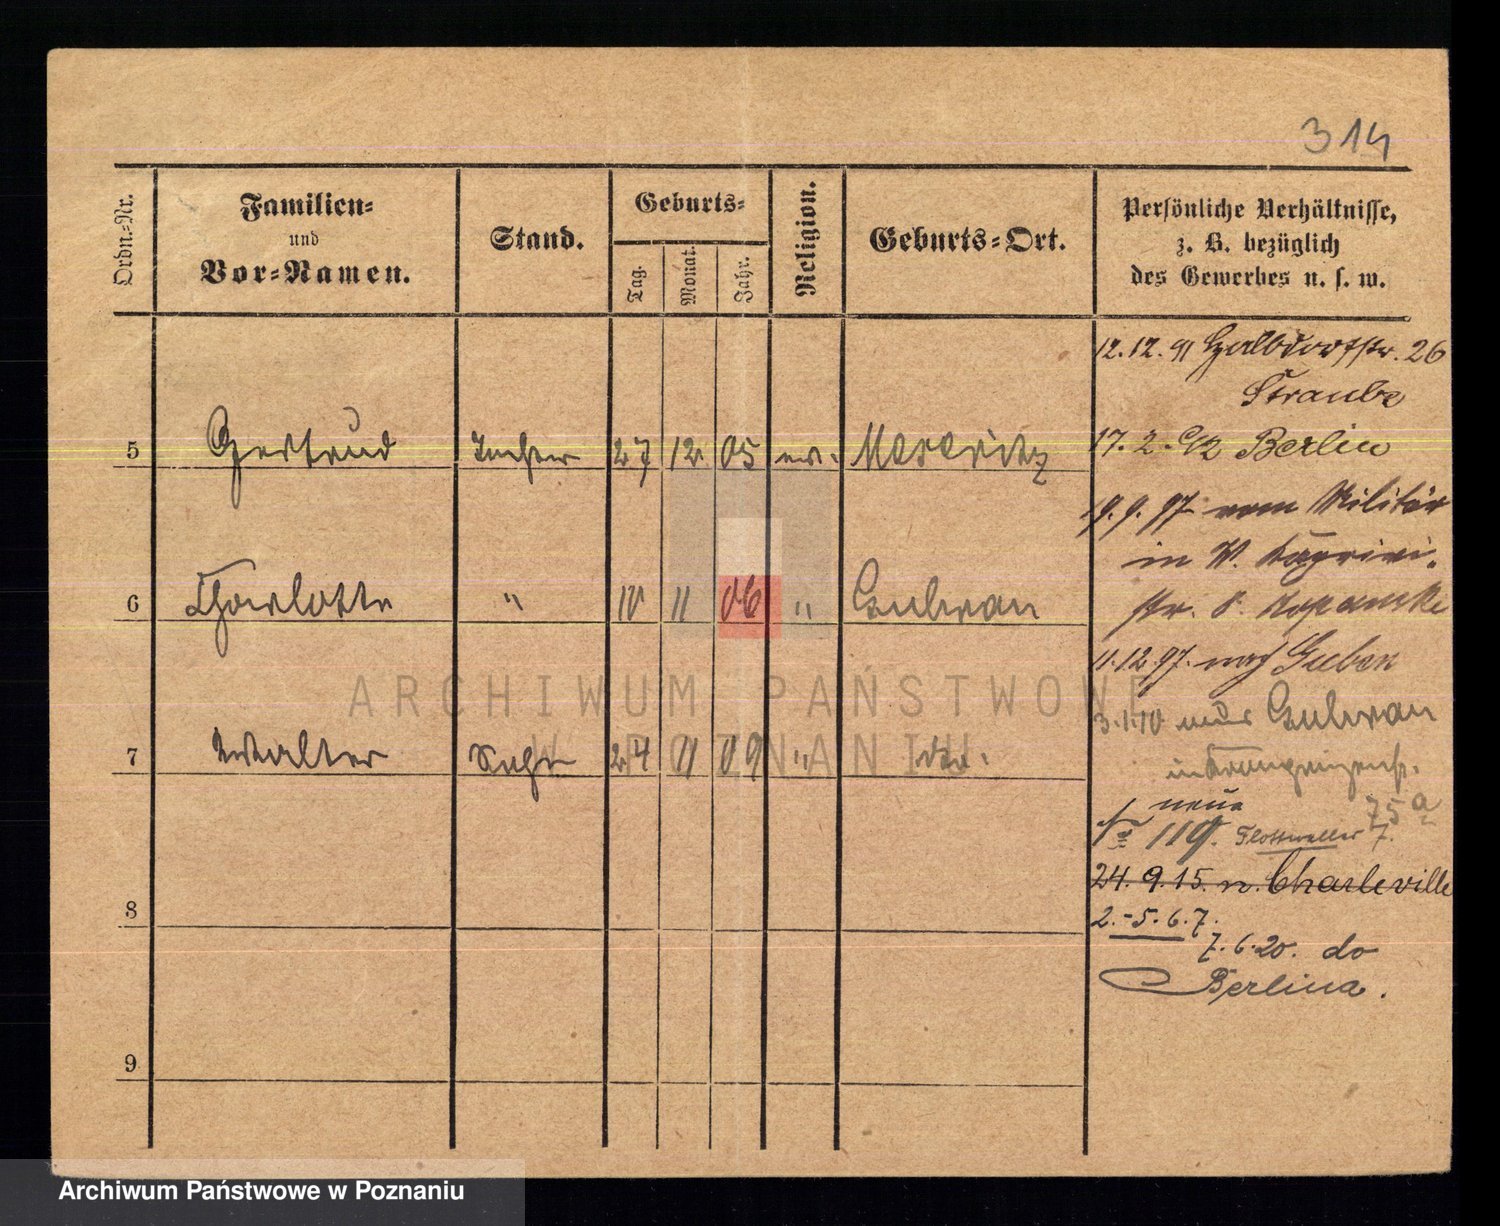 314
Ordn.-Nr.
Familien-
und
Vor-Namen.
Stand.
Geburts-
Tag.
Monat.
Jahr.
Religion.
Geburts-Ort.
Persönliche Verhältnisse,
z. B. bezüglich
des Gewerbes u. s. w.
12.12.91 Halbdorfstr. 26
Straube
5 Gertrud Tochter 27 12 05 ev. Meseritz
17. 2. 92 Berlin
19. 9. 97 vom Militär
in W.
6 Charlotte " 10 11 06 " Guhrau
str. 8.
11.12.97. nach Guben
3.1.10 Guhrau
7 Walter Sohn 24 11 09 " do.
in Kronprinzenstr.
neue 75a
119. Flottweller 7.
24. 9. 15. n. Charleville
8
2.-5. 6. 7.
7. 6. 20. do
Berlina.
9
ARCHIWUM PAŃSTWOWE
W POZNANIU
Archiwum Państwowe w Poznaniu